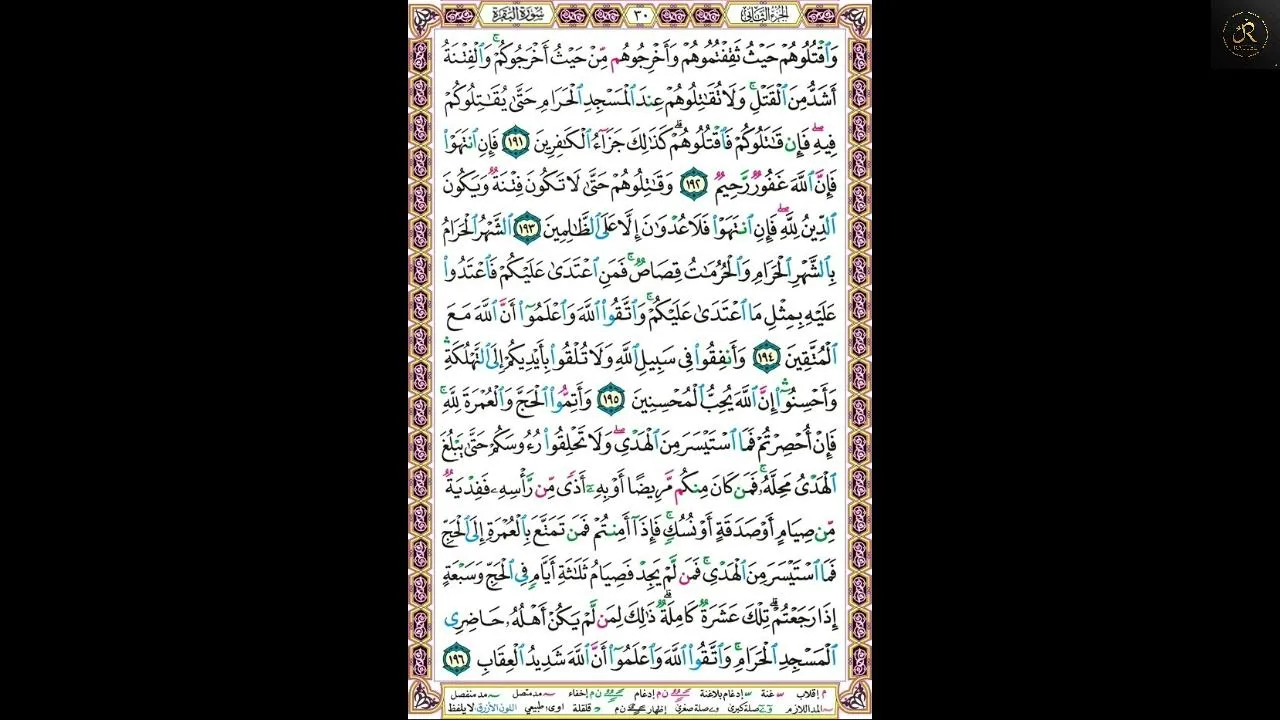 الجزء الثاني
٣٠
سورة البقرة
وَٱقۡتُلُوهُمۡ حَيۡثُ ثَقِفۡتُمُوهُمۡ وَأَخۡرِجُوهُم مِّنۡ حَيۡثُ أَخۡرَجُوكُمۡۚ وَٱلۡفِتۡنَةُ
أَشَدُّ مِنَ ٱلۡقَتۡلِۚ وَلَا تُقَٰتِلُوهُمۡ عِندَ ٱلۡمَسۡجِدِ ٱلۡحَرَامِ حَتَّىٰ يُقَٰتِلُوكُمۡ
فِيهِۖ فَإِن قَٰتَلُوكُمۡ فَٱقۡتُلُوهُمۡۗ كَذَٰلِكَ جَزَآءُ ٱلۡكَٰفِرِينَ ١٩١ فَإِنِ ٱنتَهَوۡاْ
فَإِنَّ ٱللَّهَ غَفُورٞ رَّحِيمٞ ١٩٢ وَقَٰتِلُوهُمۡ حَتَّىٰ لَا تَكُونَ فِتۡنَةٞ وَيَكُونَ
ٱلدِّينُ لِلَّهِۖ فَإِنِ ٱنتَهَوۡاْ فَلَا عُدۡوَٰنَ إِلَّا عَلَى ٱلظَّٰلِمِينَ ١٩٣ ٱلشَّهۡرُ ٱلۡحَرَامُ
بِٱلشَّهۡرِ ٱلۡحَرَامِ وَٱلۡحُرُمَٰتُ قِصَاصٞۚ فَمَنِ ٱعۡتَدَىٰ عَلَيۡكُمۡ فَٱعۡتَدُواْ
عَلَيۡهِ بِمِثۡلِ مَا ٱعۡتَدَىٰ عَلَيۡكُمۡۚ وَٱتَّقُواْ ٱللَّهَ وَٱعۡلَمُوٓاْ أَنَّ ٱللَّهَ مَعَ
ٱلۡمُتَّقِينَ ١٩٤ وَأَنفِقُواْ فِي سَبِيلِ ٱللَّهِ وَلَا تُلۡقُواْ بِأَيۡدِيكُمۡ إِلَى ٱلتَّهۡلُكَةِۛ
وَأَحۡسِنُوٓاْۛ إِنَّ ٱللَّهَ يُحِبُّ ٱلۡمُحۡسِنِينَ ١٩٥ وَأَتِمُّواْ ٱلۡحَجَّ وَٱلۡعُمۡرَةَ لِلَّهِۚ
فَإِنۡ أُحۡصِرۡتُمۡ فَمَا ٱسۡتَيۡسَرَ مِنَ ٱلۡهَدۡيِۖ وَلَا تَحۡلِقُواْ رُءُوسَكُمۡ حَتَّىٰ يَبۡلُغَ
ٱلۡهَدۡيُ مَحِلَّهُۥۚ فَمَن كَانَ مِنكُم مَّرِيضًا أَوۡ بِهِۦٓ أَذٗى مِّن رَّأۡسِهِۦ فَفِدۡيَةٞ
مِّن صِيَامٍ أَوۡ صَدَقَةٍ أَوۡ نُسُكٖۚ فَإِذَآ أَمِنتُمۡ فَمَن تَمَتَّعَ بِٱلۡعُمۡرَةِ إِلَى ٱلۡحَجِّ
فَمَا ٱسۡتَيۡسَرَ مِنَ ٱلۡهَدۡيِۚ فَمَن لَّمۡ يَجِدۡ فَصِيَامُ ثَلَٰثَةِ أَيَّامٖ فِي ٱلۡحَجِّ وَسَبۡعَةٍ
إِذَا رَجَعۡتُمۡۗ تِلۡكَ عَشَرَةٞ كَامِلَةٞۗ ذَٰلِكَ لِمَن لَّمۡ يَكُنۡ أَهۡلُهُۥ حَاضِرِي
ٱلۡمَسۡجِدِ ٱلۡحَرَامِۚ وَٱتَّقُواْ ٱللَّهَ وَٱعۡلَمُوٓاْ أَنَّ ٱللَّهَ شَدِيدُ ٱلۡعِقَابِ ١٩٦
م إقلاب غنة إدغام بلاغنة ن م إدغام ن م إخفاء مد متصل مد منفصل
المد اللازم صلة كبرى صلة صغرى إظهار ن م قلقلة اوى: طبيعي اللون الأزرق لا يلفظ